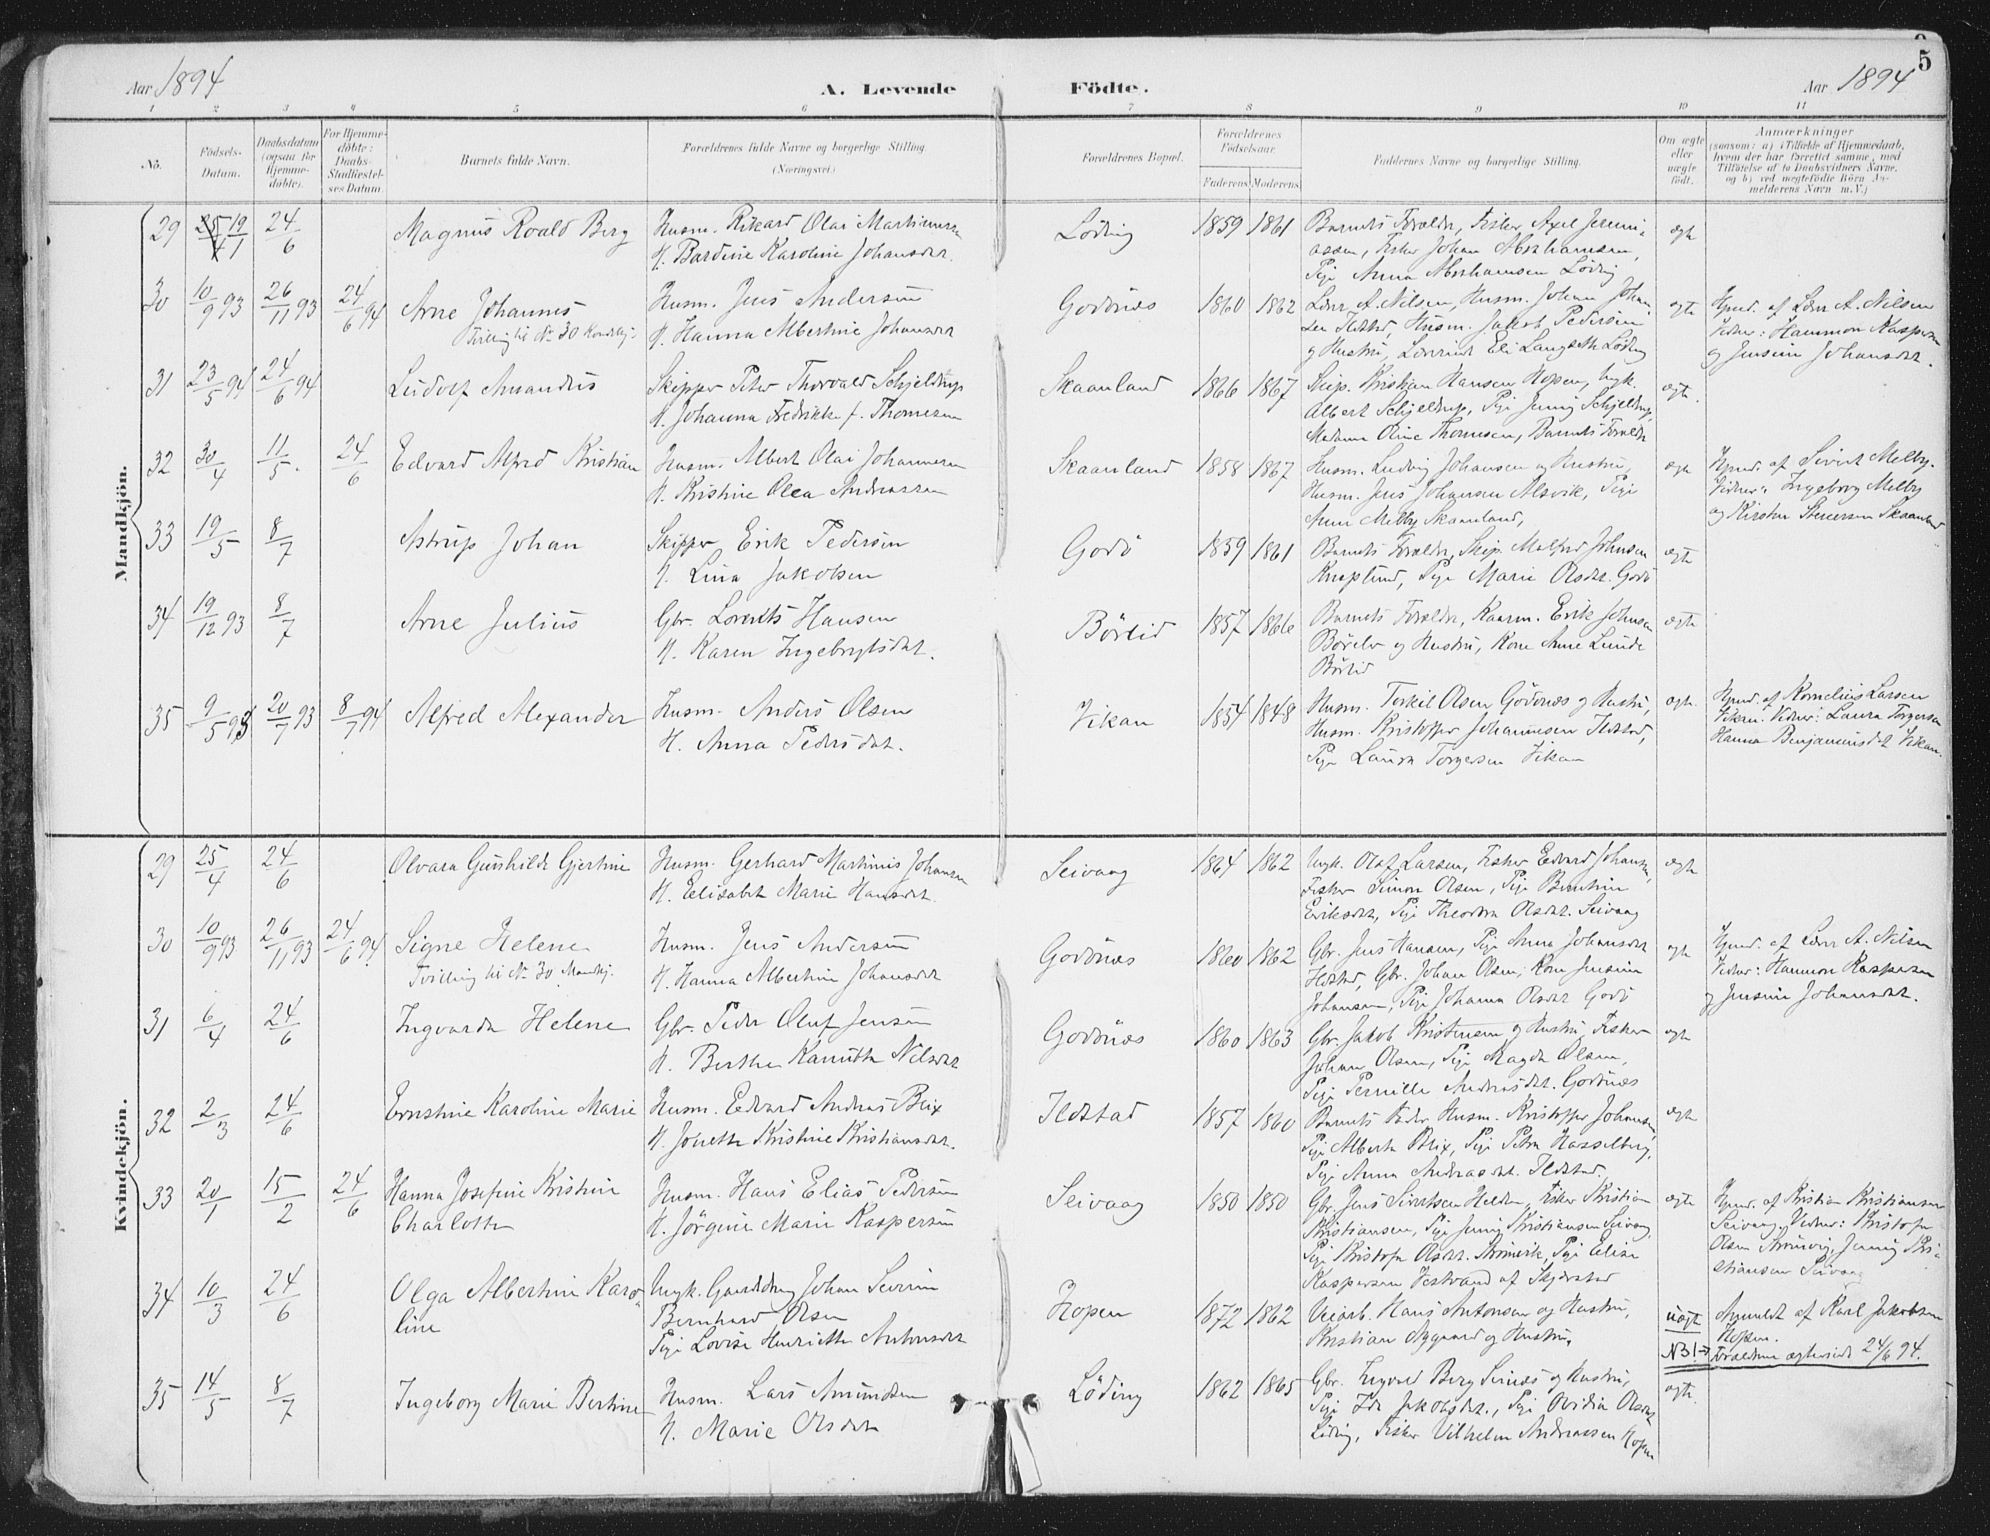 5
Aar 1894
A. Levende Födte.
Aar 1894
1 2 3 4 5 6 7 8 9 10 11
No.
Födsels-
Datum.
Daabsdatum
(ogsaa for
Hjemme-
döbte).
For Hjemme-
döbte:
Daabs-
Stadfæstel-
ses Datum.
Barnets fulde Navn.
Forældrenes fulde Navne og borgerlige Stilling
(Næringsvei).
Forældrenes Bopæl.
Forældrenes
Födselsaar.
Faderens Moderens
Faddernes Navne og borgerlige Stilling.
Om ægte
eller
uægte
födt.
Anmærkninger
(saasom: a) i Tilfælde af Hjemmedaab,
hvem der har forrettet samme, med
Tilföielse af to Daabsvidners Navne,
og b) ved uægtefödte Börn An-
melderens Navn m. V.)
Mandkjön.
29 19/1 24/6 Magnus Roald Berg
Husm. Rikard Olai Martinussen
H. Bardine Karoline Johansdat.
Löding 1859 1861
Barnets Forældre, Fisker Axel Jeremi-
assen, Fisker Johan Abrahamsen,
Pige Anna Abrahamsen Löding
ægte
30 10/9 93 26/11 93 24/6 94 Arne Johannes
Tvilling til No 30 Kvindekj.
Husm. Jens Andersen
H. Hanna Albertine Johansdat
Godönes 1860 1862
Lærer A. Nilsen, Husm. Johan Johan-
sen Ildstad, Husm. Jakob Pedersen
og Hustru, Lærerinde Eli Langseth Löding
ægte
Hjmd. af Lærer A. Nilsen
Vidner: Hammon Kaspersen
og Jensine Johansdat.
31 23/5 94 24/6 94 Ludolf Amandus
Skipper Peter Thorvald Schjeldrup
H. Johanna Fredrikke f. Thomesen
Skaanland 1866 1867
Skip. Kristian Hansen Hopen, Ungk.
Albert Schjeldrup, Pige Jenny Schjeldrup,
Madame Oline Thomesen, Barnets Forældre
ægte.
32 30/4 11/5. 24/6 Edvard Alfred Kristian
Husm. Albert Olai Johannesen
H. Kristine Olea Andreassen
Skaanland 1858 1867
Husm. Ludvig Johansen og Hustru,
Husm. Jens Johansen Alsvik, Pige
Anne Melby Skaanland,
ægte
Hjmd. af Sivert Melby.
Vidner: Ingeborg Melby
og Kirsten Stenersen Skaanland
33 19/5 8/7 Astrup Johan
Skipper Erik Pedersen
H. Lina Jakobsen
Godö 1859 1861
Barnets Forældre, Skip. Malfred Johnsen
Knaplund, Pige Marie Olsdat. Godö
ægte
34 19/12 93 8/7 Arne Julius
Gbr. Lorents Hansen
H. Karen Ingebrigtsdat.
Börlid 1857 1866
Barnets Forældre, Kaarm. Erik Johnsen
og Hustru, Kone Anne Lunde
Börlid
ægte
35 9/5 93 20/7 93 8/7 94 Alfred Alexander
Husm. Anders Olsen
H. Anna Pedersdat.
Vikan 1854 1848
Husm. Torkil Olsen Godönes og Hustru,
Husm. Kristoffer Johannesen Ildstad,
Pige Laura Torgersen Vikan
ægte.
Hjmd. af Kornelius Larsen
Vikan. Vidner: Laura Torgersen
Hanna Benjaminsdat Vikan.
Kvindekjön.
29 25/4 24/6 Olvara Gunhilde Gjertine
Husm. Gerhard Martinus Johansen
H. Elisabet Marie Hansdat.
Seivaag 1864 1862
Ungk. Olaf Larsen, Fisker Edvard Johansen,
Fisker Simon Olsen, Pige Berntine
Eriksdat, Pige Theodora Olsdat. Seivaag
ægte
30 10/9 93 26/11 93 24/6 94. Signe Helene
Tvilling til No 30 Mandkj.
Husm. Jens Andersen
H. Hanna Albertine Johansdat
Godönes 1860 1862
Gbr. Jens Hansen, Pige Anna Johansdat
Ildstad, Gbr. Johan Olsen, Kone Jensine
Johansen, Pige Johanna Olsdat Godö
ægte
Hjmd. af Lærer A. Nilsen
Vidner: Hammon Kaspersen
og Jensine Johansdat.
31 6/4 24/6 Ingvarda Helene
Gbr. Peder Oluf Jensen
H. Berthe Kanutte Nilsdat
Godönes 1860 1863
Gbr. Jakob Kristensen og Hustru, Fisker
Johan Olsen, Pige Magda Olsen,
Pige Pernille Andreasdat. Godönes
ægte
32 2/3 24/6 Ernstine Karoline Marie
Husm. Edvard Andreas Blix
H. Jonette Kristine Kristiansdat.
Ildstad 1857 1860
Barnets Fader Husm. Kristoffer Johansen,
Pige Alberta Blix, Pige Petra Hasselberg,
Pige Anna Andreasdat. Ildstad
ægte
33 20/1 15/2 24/6 Hanna Josefine Kristine
Charlotte
Husm. Hans Elias Pedersen
H. Jörgine Marie Kaspersen
Seivaag 1850 1850
Gbr. Jens Sivertsen Helden, Fisker Kristian
Kristiansen, Pige Jenny Kristiansen Seivaag,
Pige Kristofa Olsdat. Pige Elise
Kaspersen af Skjerstad
ægte
Hjmd. af Kristian Kristiansen
Seivaag. Vidner: Kristofa
Olsen Jenny Kri-
stiansen Seivaag
34 10/3 24/6 Olga Albertine Karo-
line
Ungk. Johan Severin
Bernhard Olsen
Pige Lovise Henriette Antonsdat
Hopen 1872 1862
Veiarb. Hans Antonsen og Hustru,
Kristian Nygaard og Hustru.
uægte
NB!
Anmeldt af Karl Jakobsen
Hopen.
Forældrene ægteviede 24/6 94.
35 14/5 8/7 Ingeborg Marie Bertine
Husm. Lars Amundsen
H. Marie Olsdat
Löding 1862 1865
Gbr. Ingvald Berg og Hustru,
Pige Ida Jakobsdat., Pige Ovidia Olsdat
Löding, Fisker Vilhelm Andreassen Hopen
ægte.